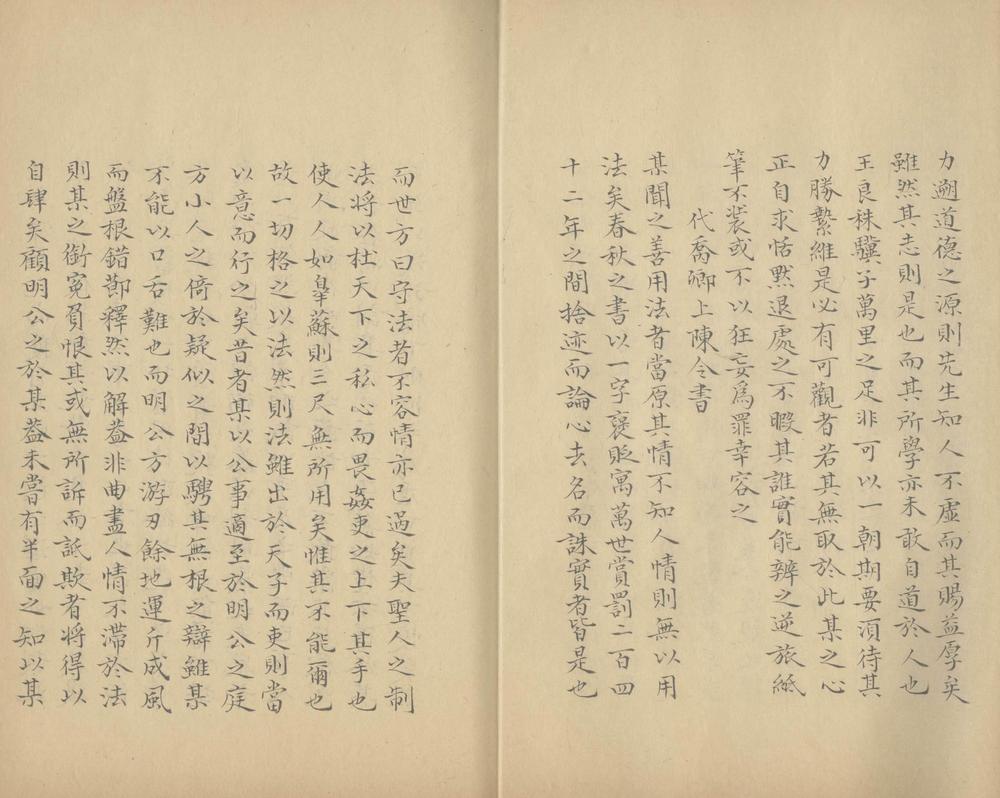 力遡道德之源則先生知人不虛而其賜益厚矣
雖然其志則是也而其所學亦未敢自道於人也
王良秣驥子萬里之足非可以一朝期要須待其
力勝縶維是必有可觀者若其無取於此某之心
正自求恬默退處之不暇其誰實能辨之逆旅紙
筆不裝或不以狂妄爲罪幸容之
代喬卿上陳令書
某聞之善用法者當原其情不知人情則無以用
法矣春秋之書以一字襃貶寓萬世賞罰二百四
十二年之間捨迹而論心去名而誅實者皆是也
而世方曰守法者不容情亦已過矣夫聖人之制
法將以杜天下之私心而畏姦吏之上下其手也
使人人如皐蘇則三尺無所用矣惟其不能爾也
故一切格之以法然則法雖出於天子而吏則當
以意而行之矣昔者某以公事適至於明公之庭
方小人之倚於疑似之間以騁其無根之辯雖某
不能以口舌難也而明公方游刃餘地運斤成風
而盤根錯節釋然以解益非曲盡人情不滯於法
則某之銜寃負恨其或無所訴而詆欺者將得以
自肆矣顧明公之於某益未嘗有半面之知以某